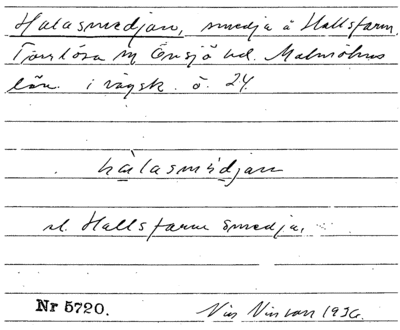 Halasmedjan, smedja å Hallsfarm,
Torrlösa sn Önsjö hd. Malmöhus
län. i vägsk. ö. 24.
halasmidjan
st. Hallsfarm smedja.
Nr 5720. Nils Nilsson 1936.